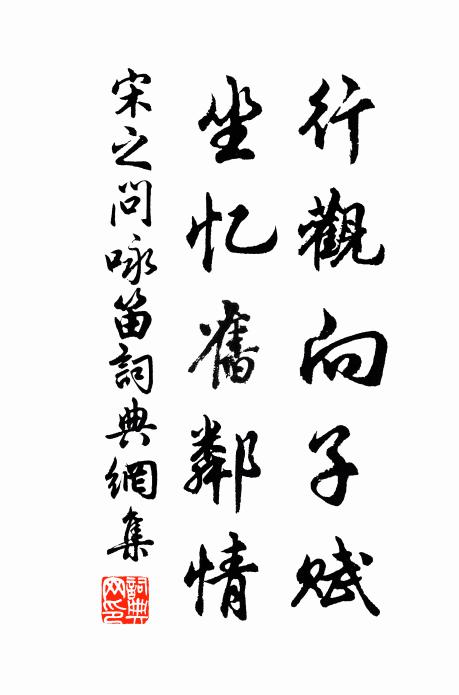 行觀向子赋
坐忆舊鄰情
宋之問咏笛詞典網集
詞典网印